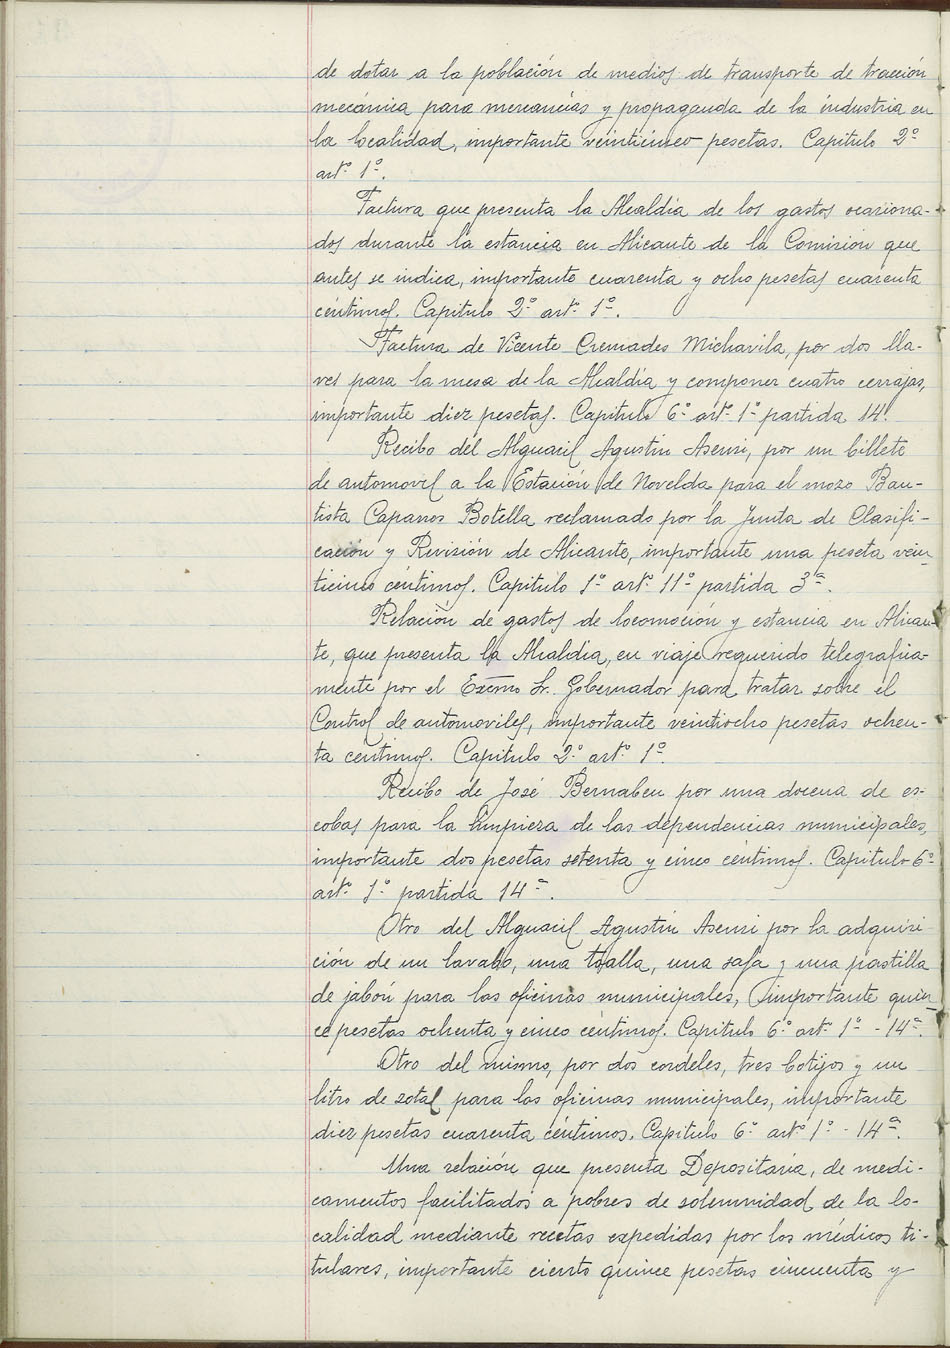 de dotar a la población de medios de transporte de tracción
mecánica para mercancías y propaganda de la industria en
la localidad, importante veinticinco pesetas. Capitulo 2º
artº 1º.
Factura que presenta la Alcaldía de los gastos ocasiona-
dos durante la estancia en Alicante de la Comisión que
antes se indica, importante cuarenta y ocho pesetas cuarenta
céntimos. Capitulo 2º artº 1º.
Factura de Vicente Cremades Michavila, por dos lla-
ves para la mesa de la Alcaldía y componer cuatro cerrajas,
importante diez pesetas. Capitulo 6º artº 1º partida 14ª.
Recibo del Alguacil Agustín Asensi, por un billete
de automovil a la Estación de Novelda para el mozo Bau-
tista Caparros Botella reclamado por la Junta de Clasifi-
cación y Revisión de Alicante, importante una peseta vein-
ticinco céntimos. Capitulo 1º artº 11º partida 3ª.
Relación de gastos de locomoción y estancia en Alican-
te, que presenta la Alcaldía, en viaje requerido telegrafica-
mente por el Excmo Sr. Gobernador para tratar sobre el
Control de automoviles, importante veintiocho pesetas ochen-
ta centimos. Capitulo 2º artº 1º.
Recibo de José Bernabeu por una docena de es-
cobas para la limpieza de las dependencias municipales,
importante dos pesetas setenta y cinco céntimos. Capitulo 6º
artº 1º partida 14ª.
Otro del Alguacil Agustín Asensi por la adquisi-
ción de un lavabo, una toalla, una safa y una pastilla
de jabón para las oficinas municipales, importante quin-
ce pesetas ochenta y cinco céntimos. Capitulo 6º artº 1º - 14ª.
Otro del mismo, por dos cordeles, tres botijos y un
litro de zotal para las oficinas municipales, importante
diez pesetas cuarenta céntimos. Capitulo 6º artº 1º - 14ª.
Una relación que presenta Depositaría, de medi-
camentos facilitados a pobres de solemnidad de la lo-
calidad mediante recetas expedidas por los médicos ti-
tulares, importante ciento quince pesetas cincuenta y